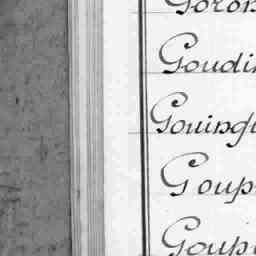 Goron
Goudin
Gouingu
Goup
Goupi